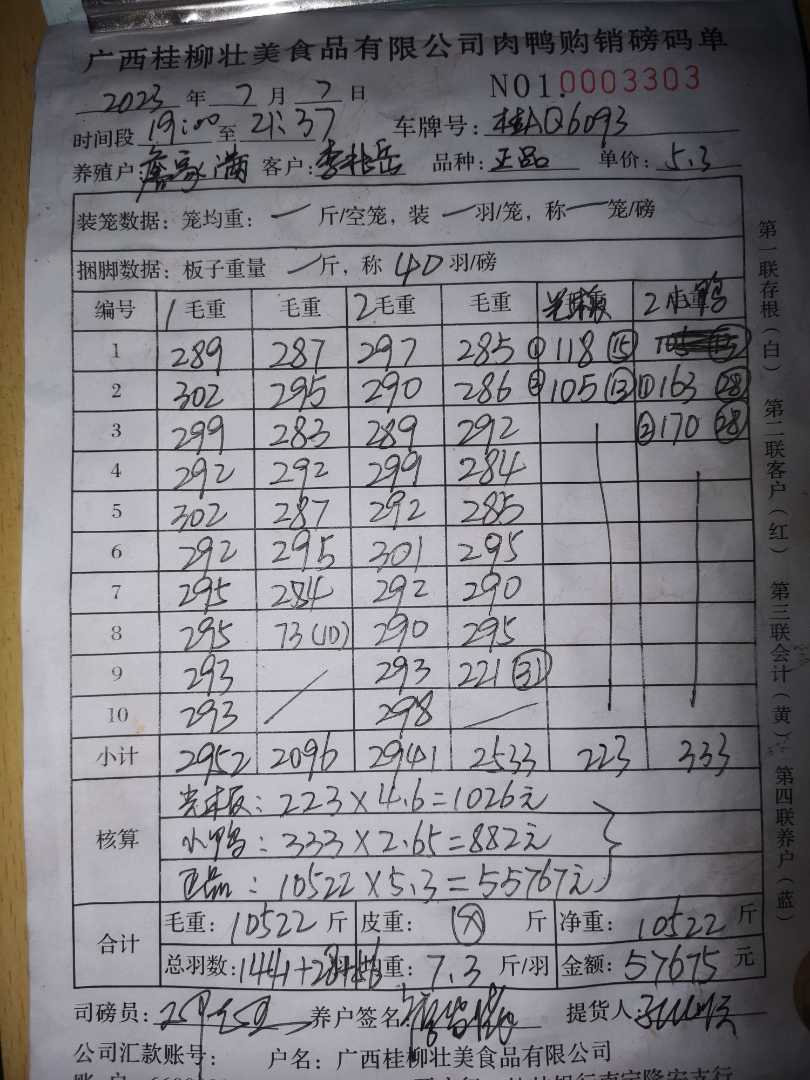 广西桂柳壮美食品有限公司肉鸭购销磅码单
2023 年 7 月 7 日 NO1.0003303
时间段 19:00 至 21:37 车牌号: 桂AQ6093
养殖户: 满 客户: 李 岳 品种: 正品 单价: 5.3
装笼数据: 笼均重: 一 斤/空笼, 装 一 羽/笼, 称 一 笼/磅
捆脚数据: 板子重量 一 斤, 称 40 羽/磅
编号 1毛重 毛重 2毛重 毛重 光体板 2小鸭
1 289 287 297 285 ①118 ⑮
2 302 295 290 286 ②105 ⑬ ①163 ㉘
3 299 283 289 292 ②170 ㉘
4 292 292 299 284
5 302 287 292 285
6 292 295 301 295
7 295 284 292 290
8 295 73(10) 290 295
9 293 293 221 ㉛
10 293 298
小计 2952 2096 2941 2533 223 333
核算
光体板: 223×4.6=1026元
小鸭: 333×2.65=882元
正品: 10522×5.3=55767元
合计
毛重: 10522 斤 皮重: 斤 净重: 10522 斤
总羽数: 1441+28+56 均重: 7.3 斤/羽 金额: 57675 元
司磅员: 养户签名: 提货人:
公司汇款账号: 户名: 广西桂柳壮美食品有限公司
第一联存根(白) 第二联客户(红) 第三联会计(黄) 第四联养户(蓝)